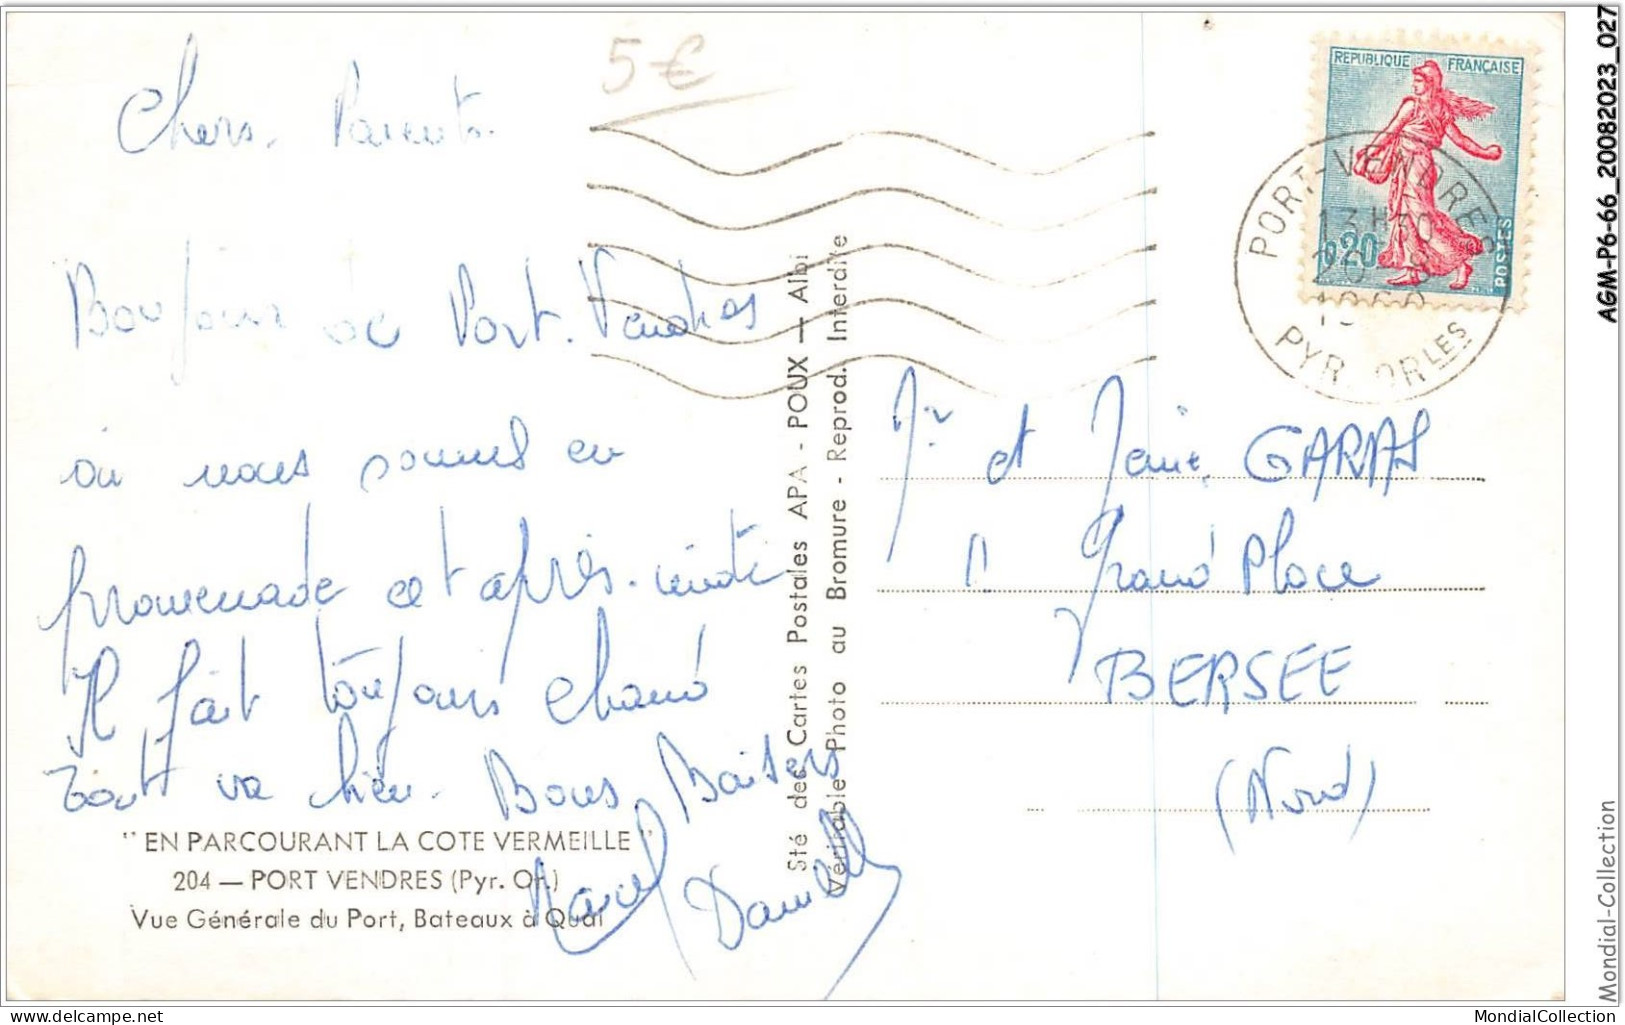 5€
Chers Parents.
Bonjour de Port. Vendres
où nous sommes en
promenade cet après-midi
Il fait toujours chaud
Tout va bien. Bons Baisers
Marcel Danielle
" EN PARCOURANT LA COTE VERMEILLE "
204 — PORT VENDRES (Pyr. Or.)
Vue Générale du Port, Bateaux à Quai
Sté des Cartes Postales APA - POUX — Albi
Véritable Photo au Bromure - Reprod. Interdite
REPUBLIQUE FRANÇAISE
0,20
POSTES
PORT-VENDRES
13H30
PYR. ORLES
et GARAS
Grand Place
BERSEE
(Nord)
AGM-P6-66_20082023_027
Mondial-Collection
delcampe.net
MondialCollection